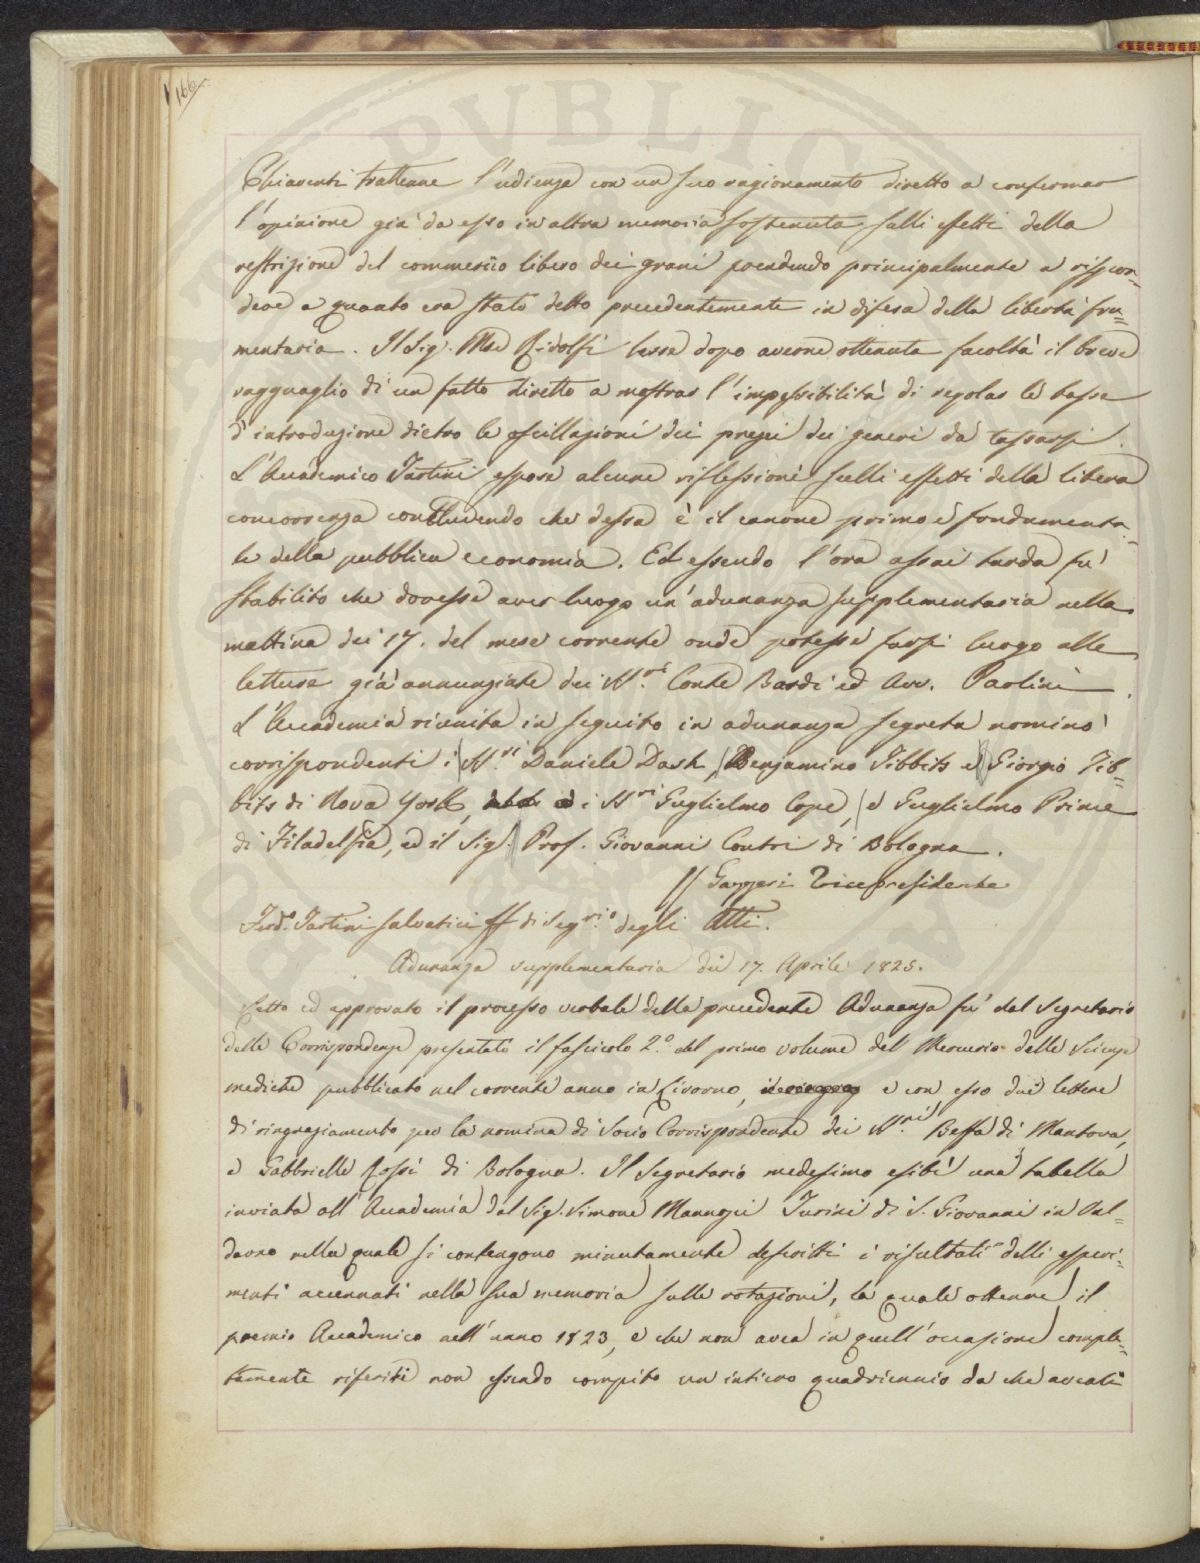 166
Chiarenti trattenne l'udienza con un suo ragionamento diretto a confermar
l'opinione già da esso in altra memoria sostenuta sulli effetti della
restrizione del commercio libero dei grani prendendo principalmente a rispon=
dere a quanto era stato detto precedentemente in difesa della libertà fru=
mentaria. Il Sig. Mse Ridolfi lesse dopo averne ottenuta facoltà il breve
ragguaglio di un fatto diretto a mostrar l'impossibilità di regolar le tasse
d'introduzione dietro le oscillazioni dei prezzi dei generi da tassarsi.
L'Accademico Tartini espose alcune riflessioni sulli effetti della libera
concorrenza concludendo che dessa è il canone primo e fondamenta=
le della pubblica economia. Ed essendo l'ora assai tarda fù
stabilito che dovesse aver luogo un'adunanza supplementaria nella
mattina dei 17. del mese corrente onde potesse farsi luogo alle
letture già annunziate dei SS.ri Conte Bardi ed Avv. Paolini.
L'Accademia riunita in seguito in adunanza segreta nominò
corrispondenti i SS.ri Daniele Dash, Benjamino Tibbits e Giorgio Tib=
bits di Nova York, i SS.ri Guglielmo Cope, e Guglielmo Prince
di Filadelfia, ed il Sig. Prof. Giovanni Contri di Bologna.
// Gazzeri Vicepresidente
Ferd.o Tartini Salvatici ff di Seg.rio degli Atti.
Adunanza supplementaria dei 17. Aprile 1825.
Letto ed approvato il processo verbale della precedente Adunanza fu dal Segretario
delle Corrispondenze presentato il fascicolo 2.o del primo volume del Mercurio delle Scienze
mediche pubblicato nel corrente anno in Livorno, e con esso due lettere
di ringraziamento per la nomina di Socio Corrispondente dei SS.ri Beffa di Mantova,
e Gabbrielle Rossi di Bologna. Il Segretario medesimo esibì una tabella
inviata all'Accademia dal Sig. Simone Mannozzi Turini di S. Giovanni in Val=
darno nella quale si contengono minutamente descritti i risultati delli esperi=
menti accennati nella sua memoria sulle rotazioni, la quale ottenne il
premio Accademico nell'anno 1823, e che non avea in quell'occasione comple=
tamente riferiti non essendo compito un intiero quadriennio da che aveali
PUBLIC